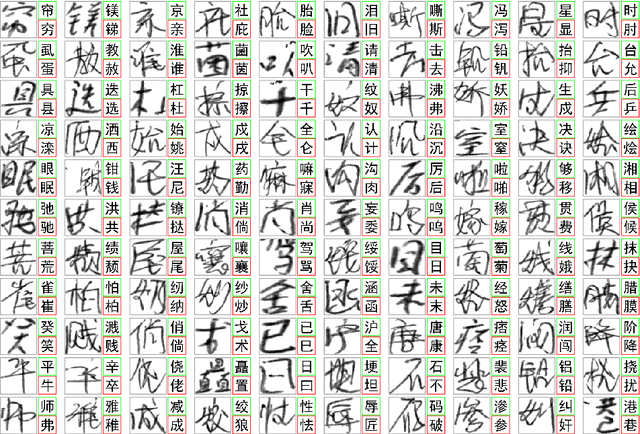 帘 镁 京 社 胎 泪 嘶 冯 星 时
穷 锑 亲 庇 脸 旧 斯 泻 显 肘
虱 教 淮 菌 吹 请 击 铅 抬 台
蛋 赦 谁 茵 叭 清 去 钒 抑 允
具 迭 杠 掠 干 纹 沸 妖 生 后
县 选 杜 千 奴 弗 娇 戍 乒
凉 洒 始 戍 全 认 沿 室 决 绘
滦 西 姚 戌 仑 计 沉 窒 诀 烩
眼 钳 汪 药 嘛 沟 厉 啦 够 湘
眠 钱 尼 勤 寐 肉 后 啪 移 相
弛 洪 镣 消 肖 妄 鸣 稼 贯 侯
驰 共 挞 倘 尚 委 呜 嫁 费 候
苦 绩 屋 嚷 驾 绥 目 萄 线 扶
荒 颓 尾 襄 骂 馁 日 葡 娥 抉
雀 怕 纫 纱 舍 涵 未 经 缮 腊
崔 柏 纳 炒 舌 函 末 怒 膳 膜
癸 溅 俏 戈 已 沪 唐 痞 润 阶
笑 贱 倘 术 巳 全 康 痉 闯 降
平 辛 侥 矗 日 埂 石 裴 铝 挠
牛 卒 佬 置 曰 坦 不 悲 铅 扰
师 雅 减 绞 性 辱 码 渗 纠 港
弗 稚 成 狼 怯 匠 破 参 奸 巷